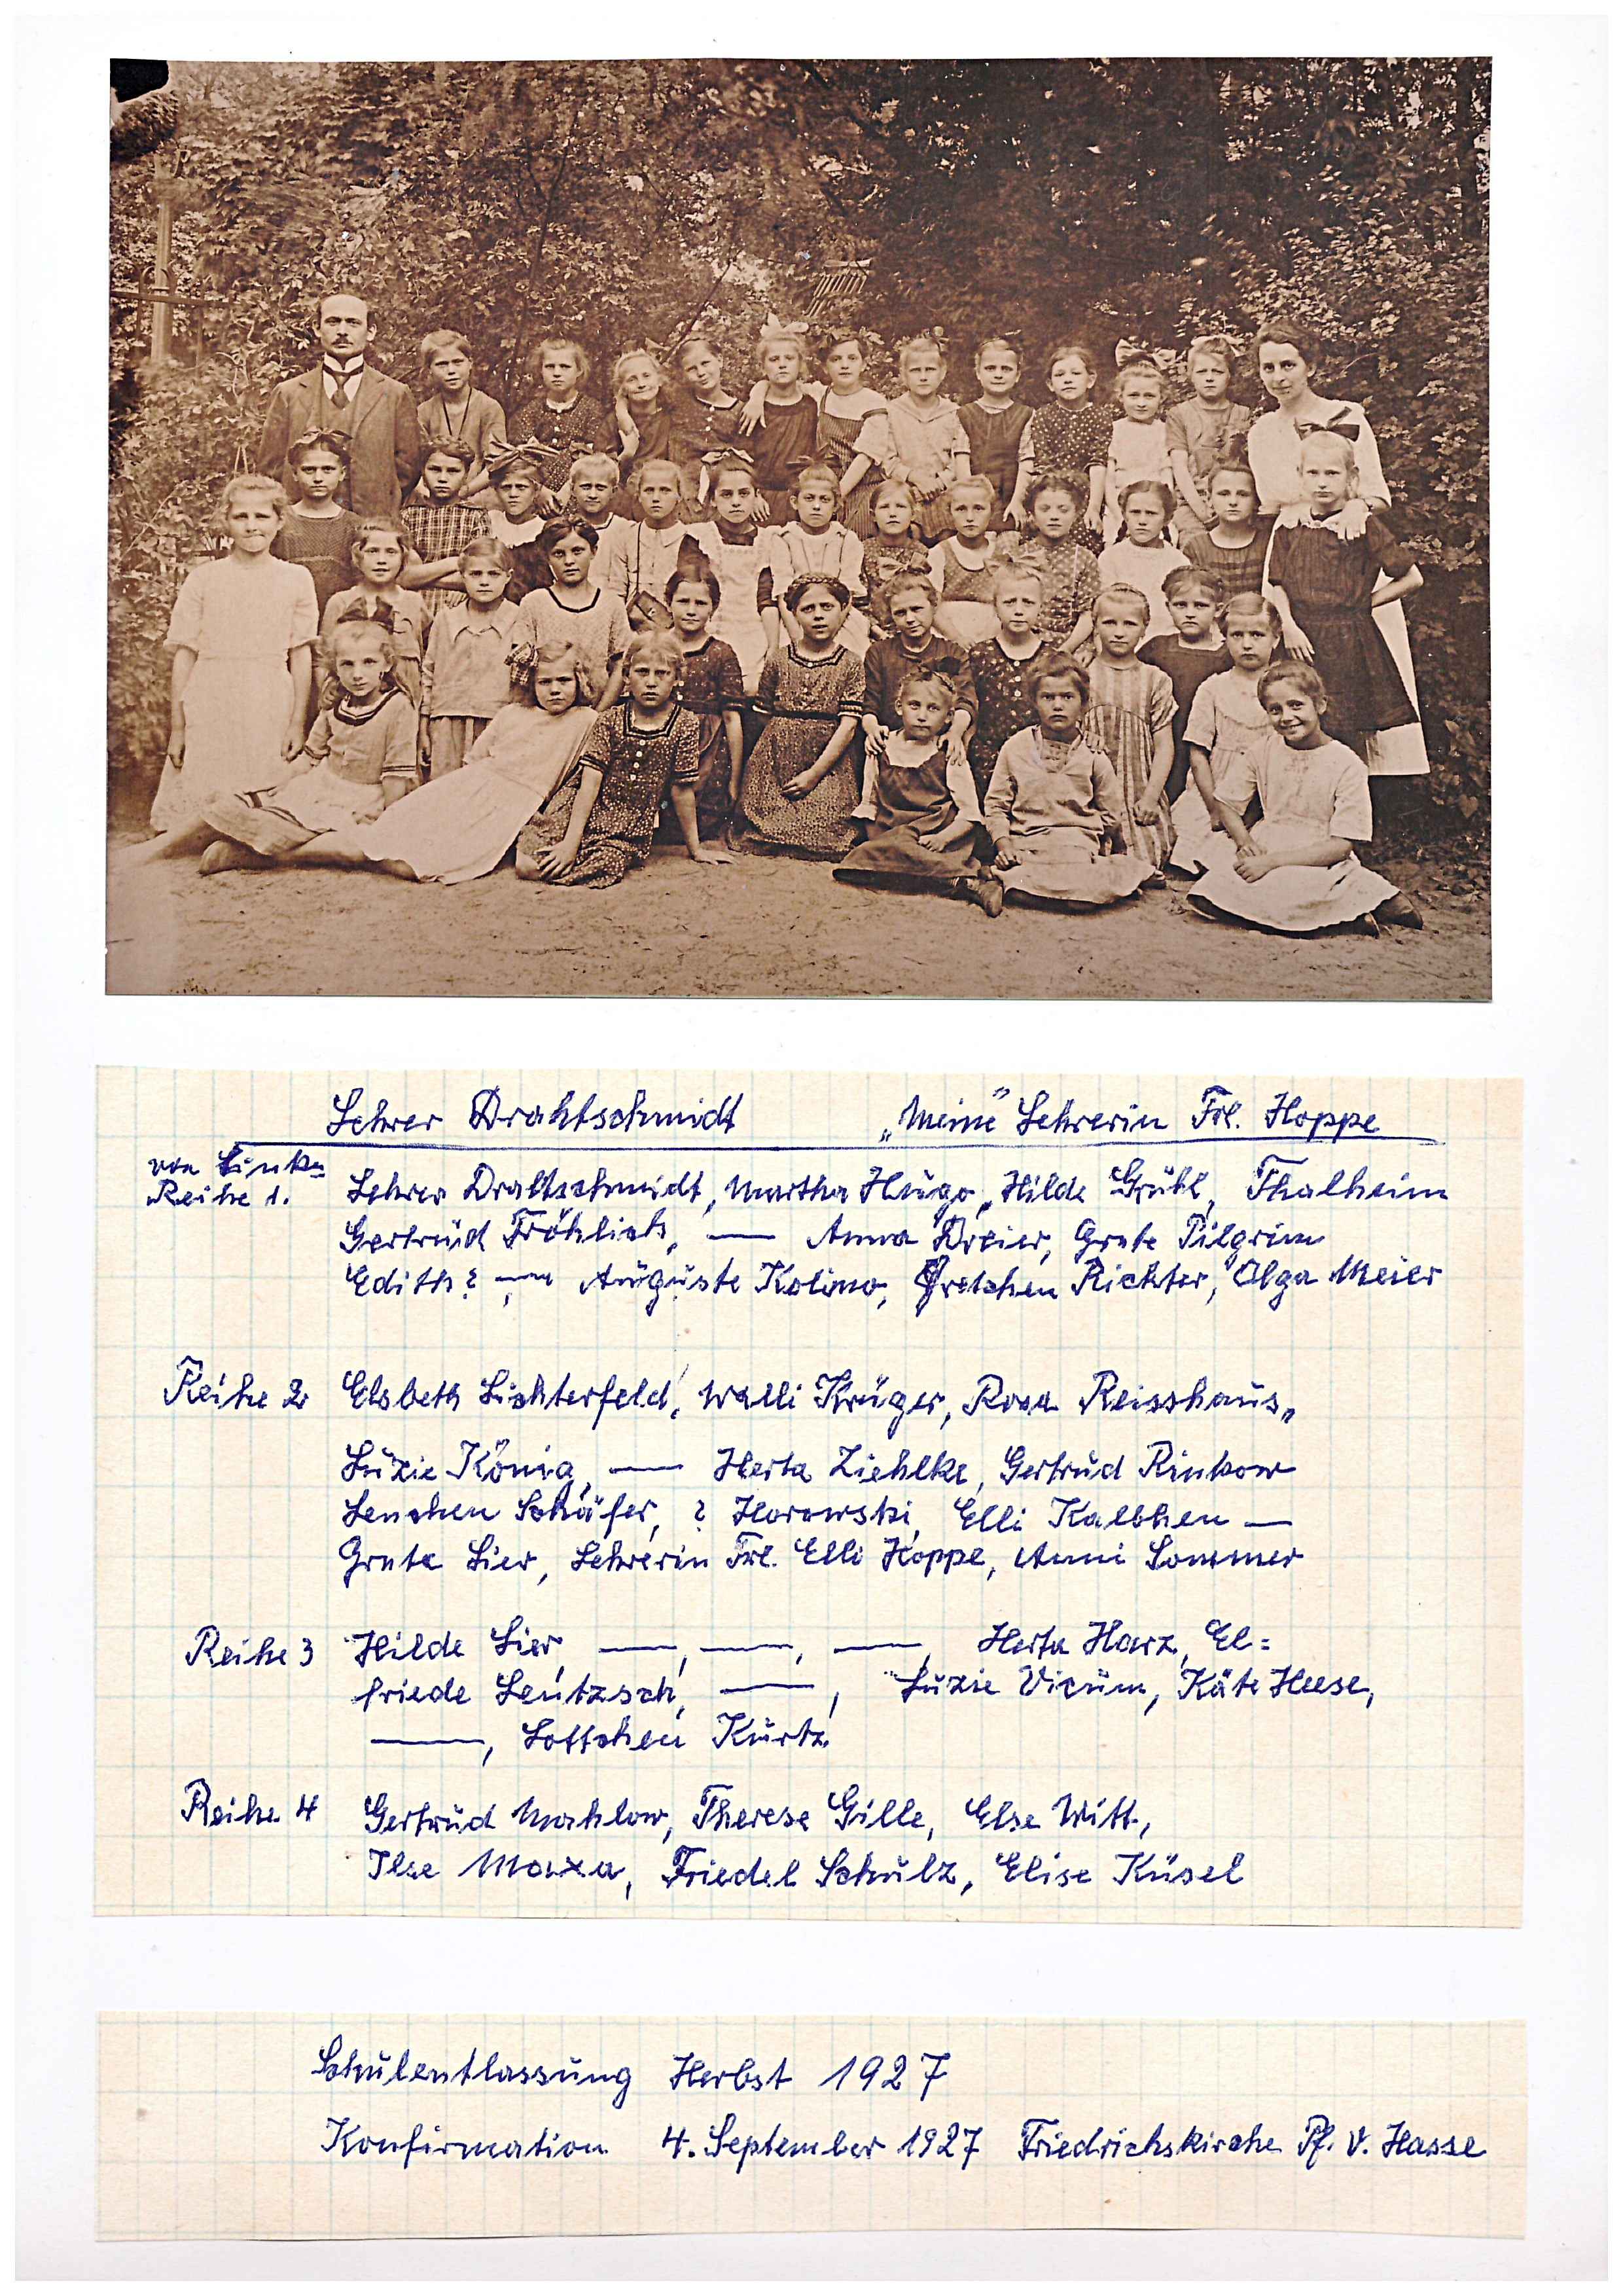 Lehrer Drahtschmidt „Meine" Lehrerin Frl. Hoppe
von Links
Reihe 1. Lehrer Drahtschmidt, Martha Hugo, Hilde Grühl, Thalheim
Gertrud Fröhlich, — Anna Dreier, Grete Pilgrim
Edith ? , — Auguste Kolimo, Gretchen Richter, Olga Meier
Reihe 2 Elsbeth Lichterfeld, Walli Krüger, Rosa Reisshaus,
Luzie König, — Herta Ziehlke, Gertrud Rinkow
Lenchen Schäfer, ? Horowski, Elli Kalbhen —
Grete Lier, Lehrerin Frl. Elli Hoppe, Anni Sommer
Reihe 3 Hilde Lier, —, —, —, Herta Harz, El=
friede Leutzsch, —, Luzie Vicum, Käte Heese,
—, Lottchen Kurtz
Reihe 4 Gertrud Mahlow, Therese Gille, Else Witt,
Ilse Moxa, Friedel Schulz, Elise Küsel
Schulentlassung Herbst 1927
Konfirmation 4. September 1927 Friedrichskirche Pf. v. Hasse